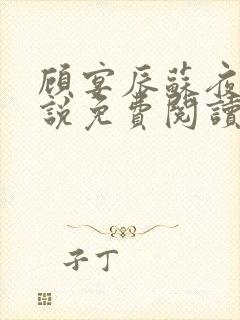 顾宴辰蘇夜
說免費閱讀
子丁